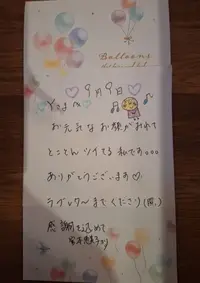 Balloons
9月9日
お元気なお顔がみれて
とことんツイてる 私です。。。
ありがとうございます♡
ラブレターまでください(笑)
感謝を込めて